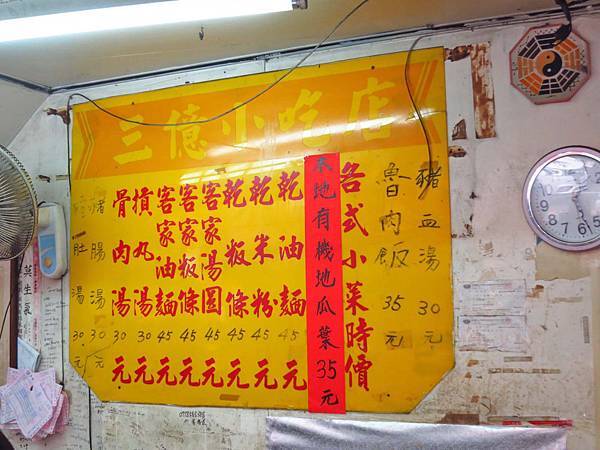 三億小吃店
豬血湯 30元
魯肉飯 35元
各式小菜時價
本地有機地瓜葉35元
乾油麵 45元
乾米粉 45元
乾粄條 45元
客家湯圓 45元
客家粄條 45元
客家油麵 45元
摃丸湯 30元
骨肉湯 30元
豬腸湯 30元
肚湯 30元
莫生氣